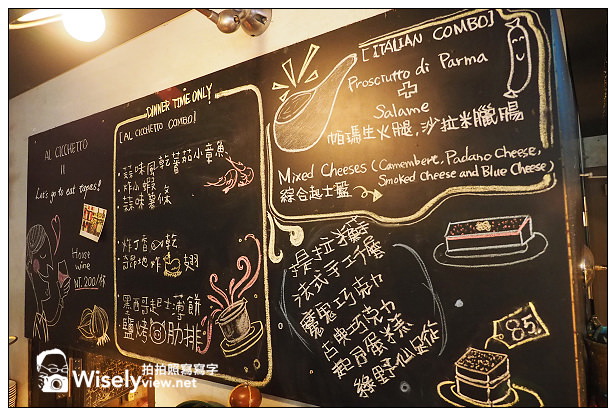 AL CICCHETTO
=
Let's go to eat tapas!
House
wine
NT.200/杯
DINNER TIME ONLY!
[AL CICCHETTO COMBO]
蒜味風乾蕃茄小章魚
炸小蝦
蒜味薯條
炸丁香乾
奇邱地炸翅
墨西哥起士薄餅
鹽烤肋排
[ITALIAN COMBO]
Prosciutto di Parma
+
Salame
帕瑪生火腿,沙拉米臘腸
Mixed Cheeses (Camembert, Padano Cheese,
綜合起士盤 Smoked Cheese and Blue Cheese)
提拉米蘇
法式手工
魔鬼巧克力
古典巧克力
起司蛋糕
綠野仙蹤
85
拍拍照寫寫字
Wiselyview.net